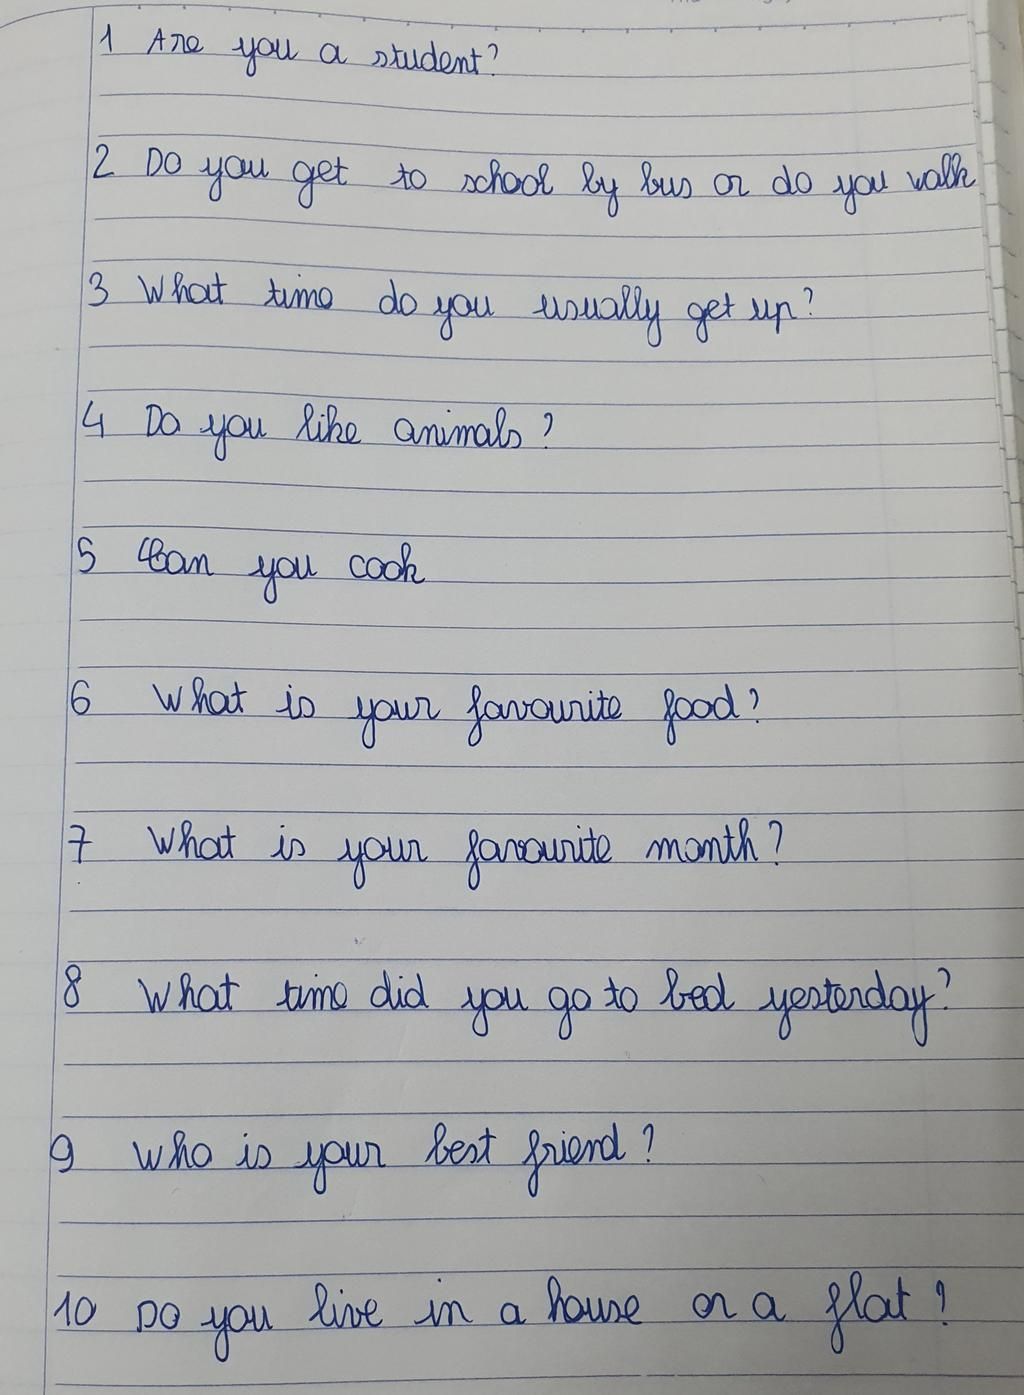 1 Are you a student?
2 Do you get to school by bus or do you walk
3 What time do you usually get up?
4 Do you like animals?
5 Can you cook
6 What is your favourite food?
7 What is your favourite month?
8 What time did you go to bed yesterday?
9 Who is your best friend?
10 Do you live in a house or a flat?